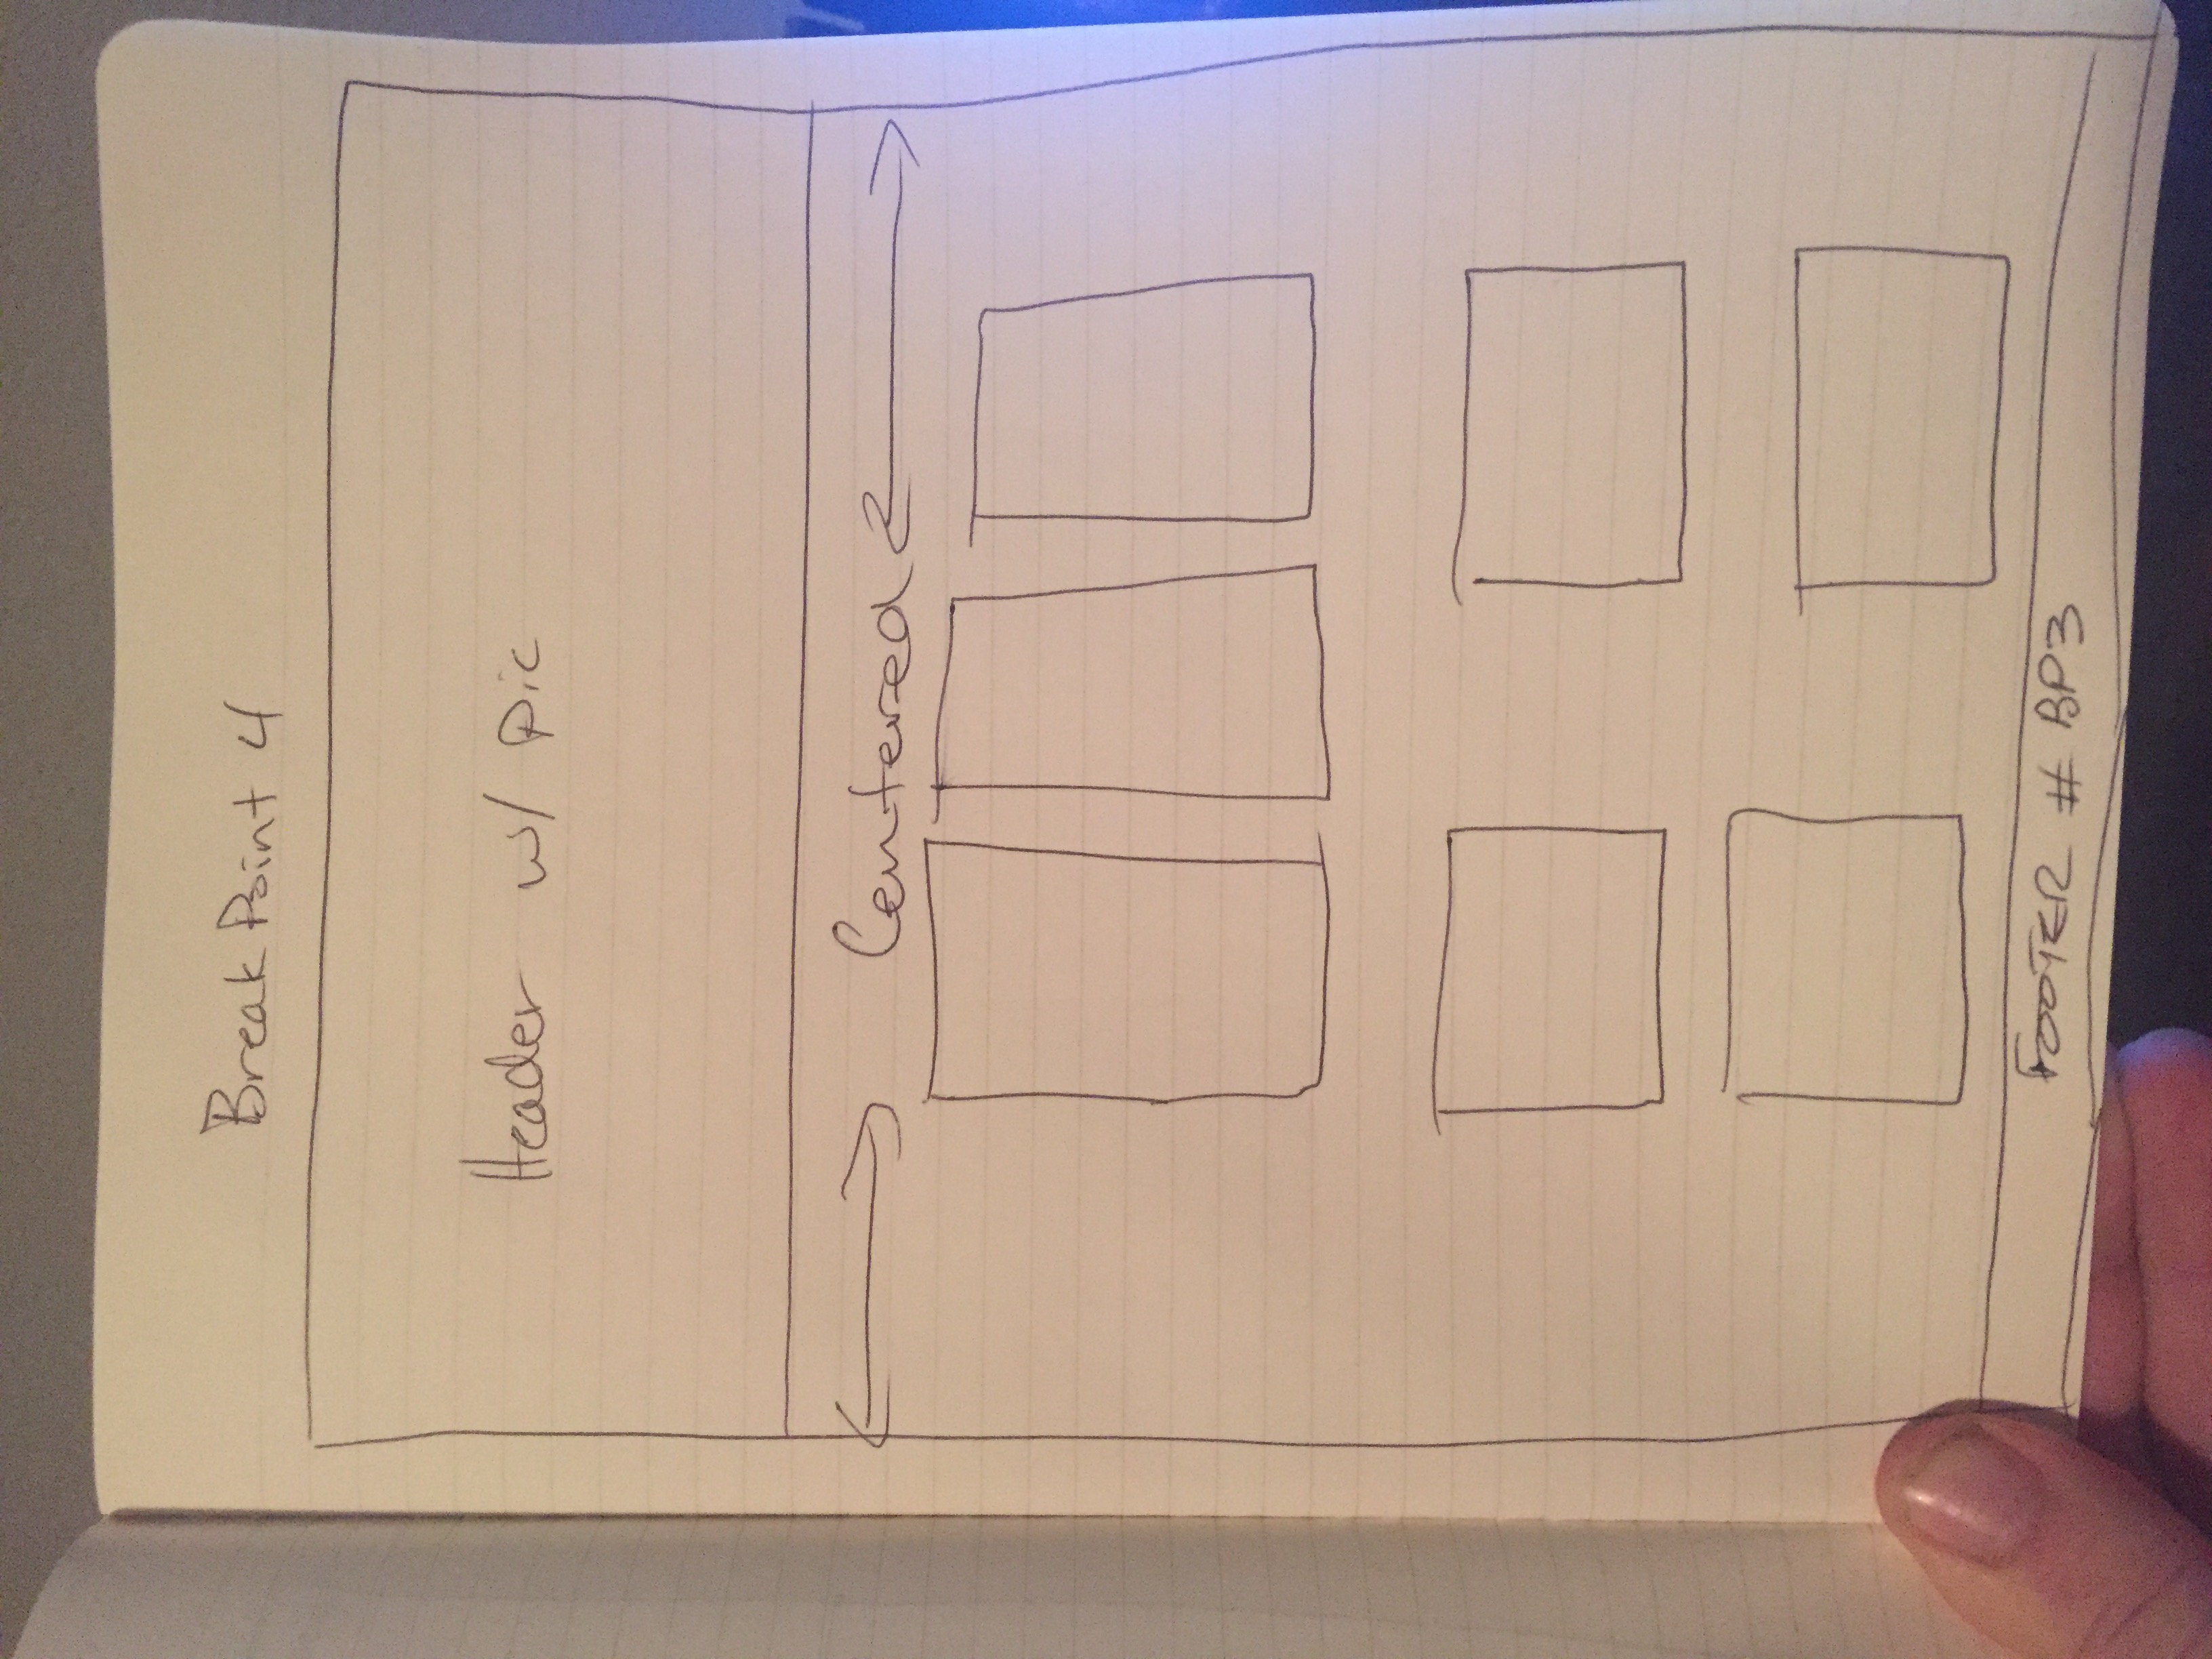 BreakPoint 4
Header w/ pic
Centered
FOOTER # BP3